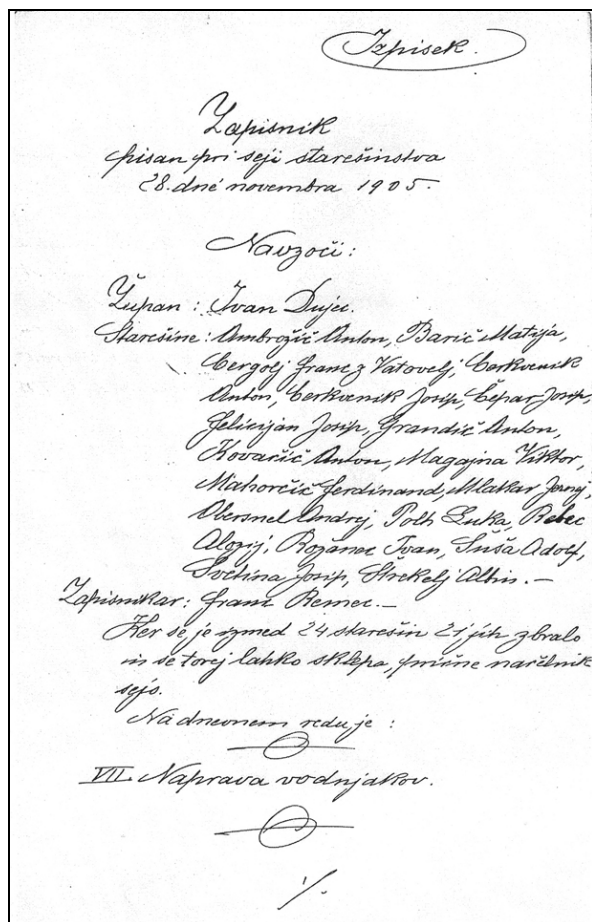 Izpisek.
Zapisnik
pisan pri seji starešinstva
28. dné novembra 1905.
Navzoči:
Župan: Ivan Dujec.
Starešine: Ambrožič Anton, Barič Matija,
Cergolj Franc z Vatovelj, Cerkvenik
Anton, Cerkvenik Josip, Čepar Josip,
Felicijan Josip, Grandič Anton,
Kovačič Anton, Magajna Viktor,
Mahorčič Ferdinand, Mlakar Jernej,
Obersnel Andrej, Polh Luka, Rebec
Alozij, Rožanec Ivan, Suša Adolf,
Svetina Josip, Štrekelj Albin. —
Zapisnikar: Franc Remec. —
Ker se je izmed 24 starešin 21 jih zbralo
in se torej lahko sklepa, prične načelnik
sejo.
Na dnevnem redu je:
VII. Naprava vodnjakov.
./.